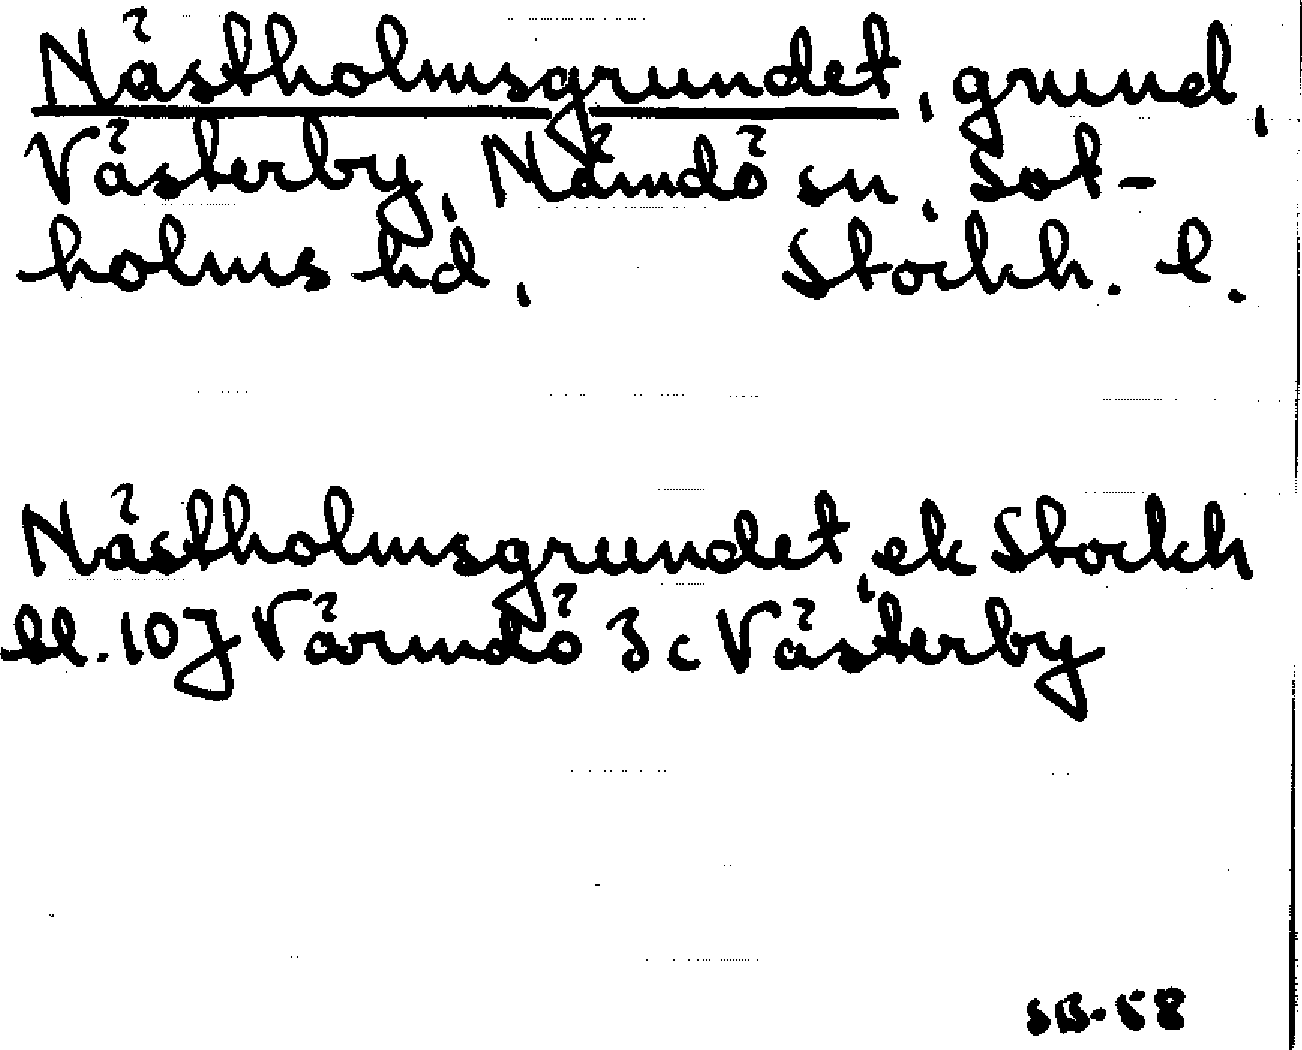 Nästholmsgrundet, grund,
Västerby, Nämdö sn, Sot-
holms hd, Stockh. l.
Nästholmsgrundet, ek Stockh
ll. 10J Värmdö 3c Västerby
SB-58